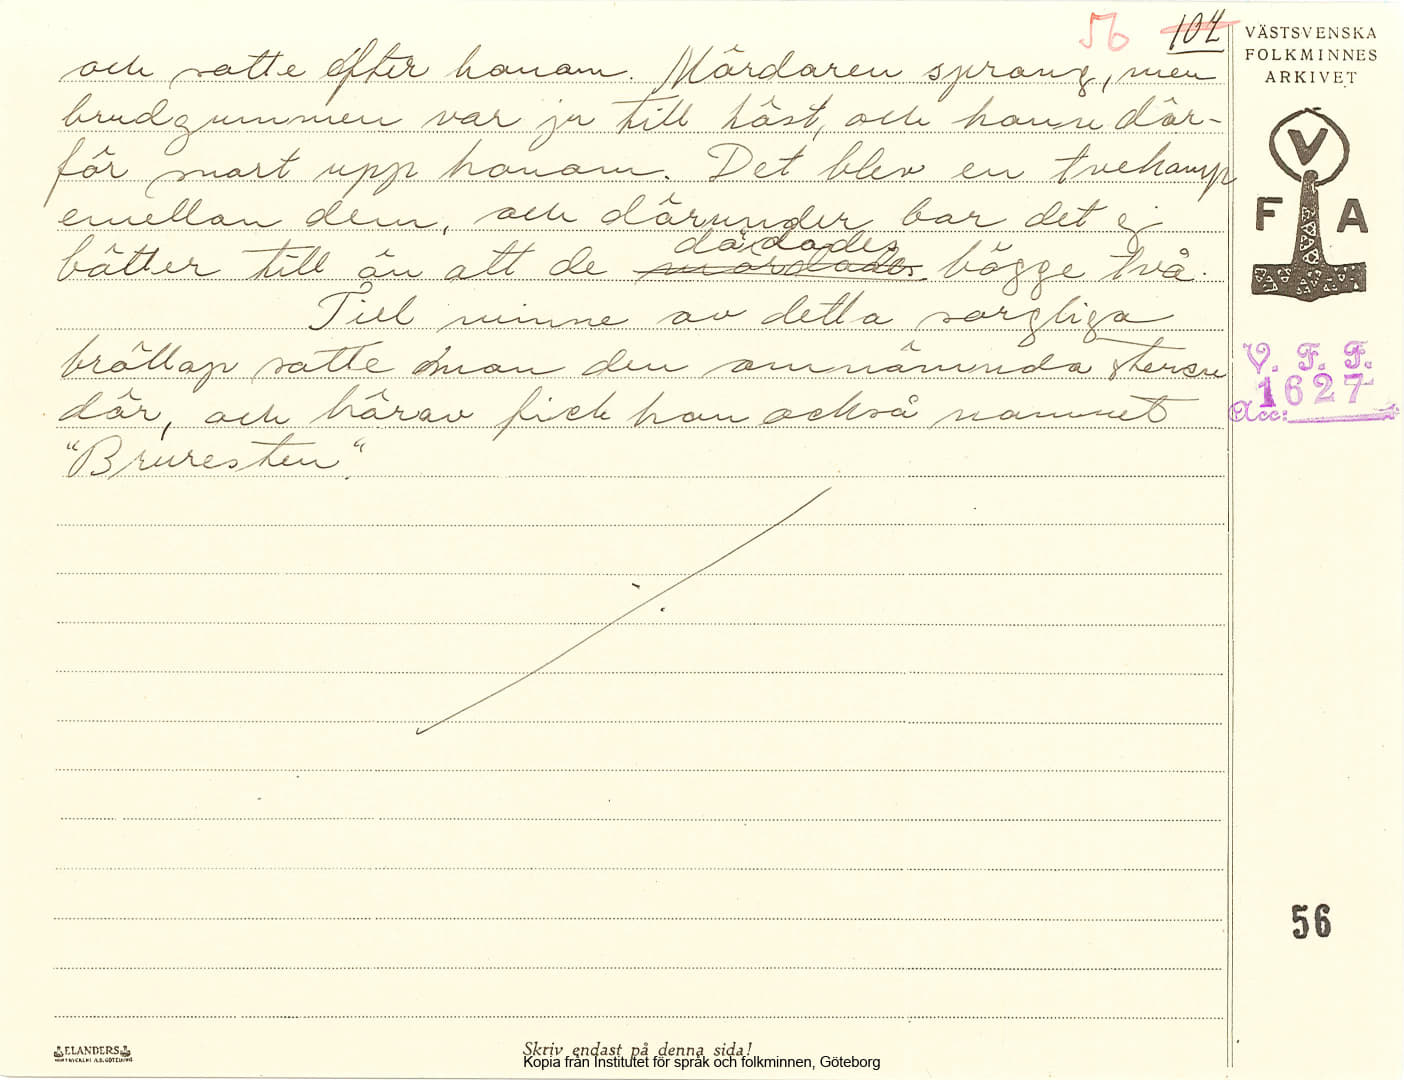 56 104
VÄSTSVENSKA
FOLKMINNES
ARKIVET
och satte efter honom. Mördaren sprang, men
brudgummen var ju till häst, och hann där-
för snart upp honom. Det blev en tvekamp
emellan dem, och därunder bar det ej
dödades
bätter till än att de mördades bägge två.
Till minne av detta sorgliga
bröllop satte man den omnämnda stenen
där, och härav fick han också namnet
"Bruresten".
V
F A
V. F. F.
1627
Acc:
56
ELANDERS
Skriv endast på denna sida!
Kopia från Institutet för språk och folkminnen, Göteborg